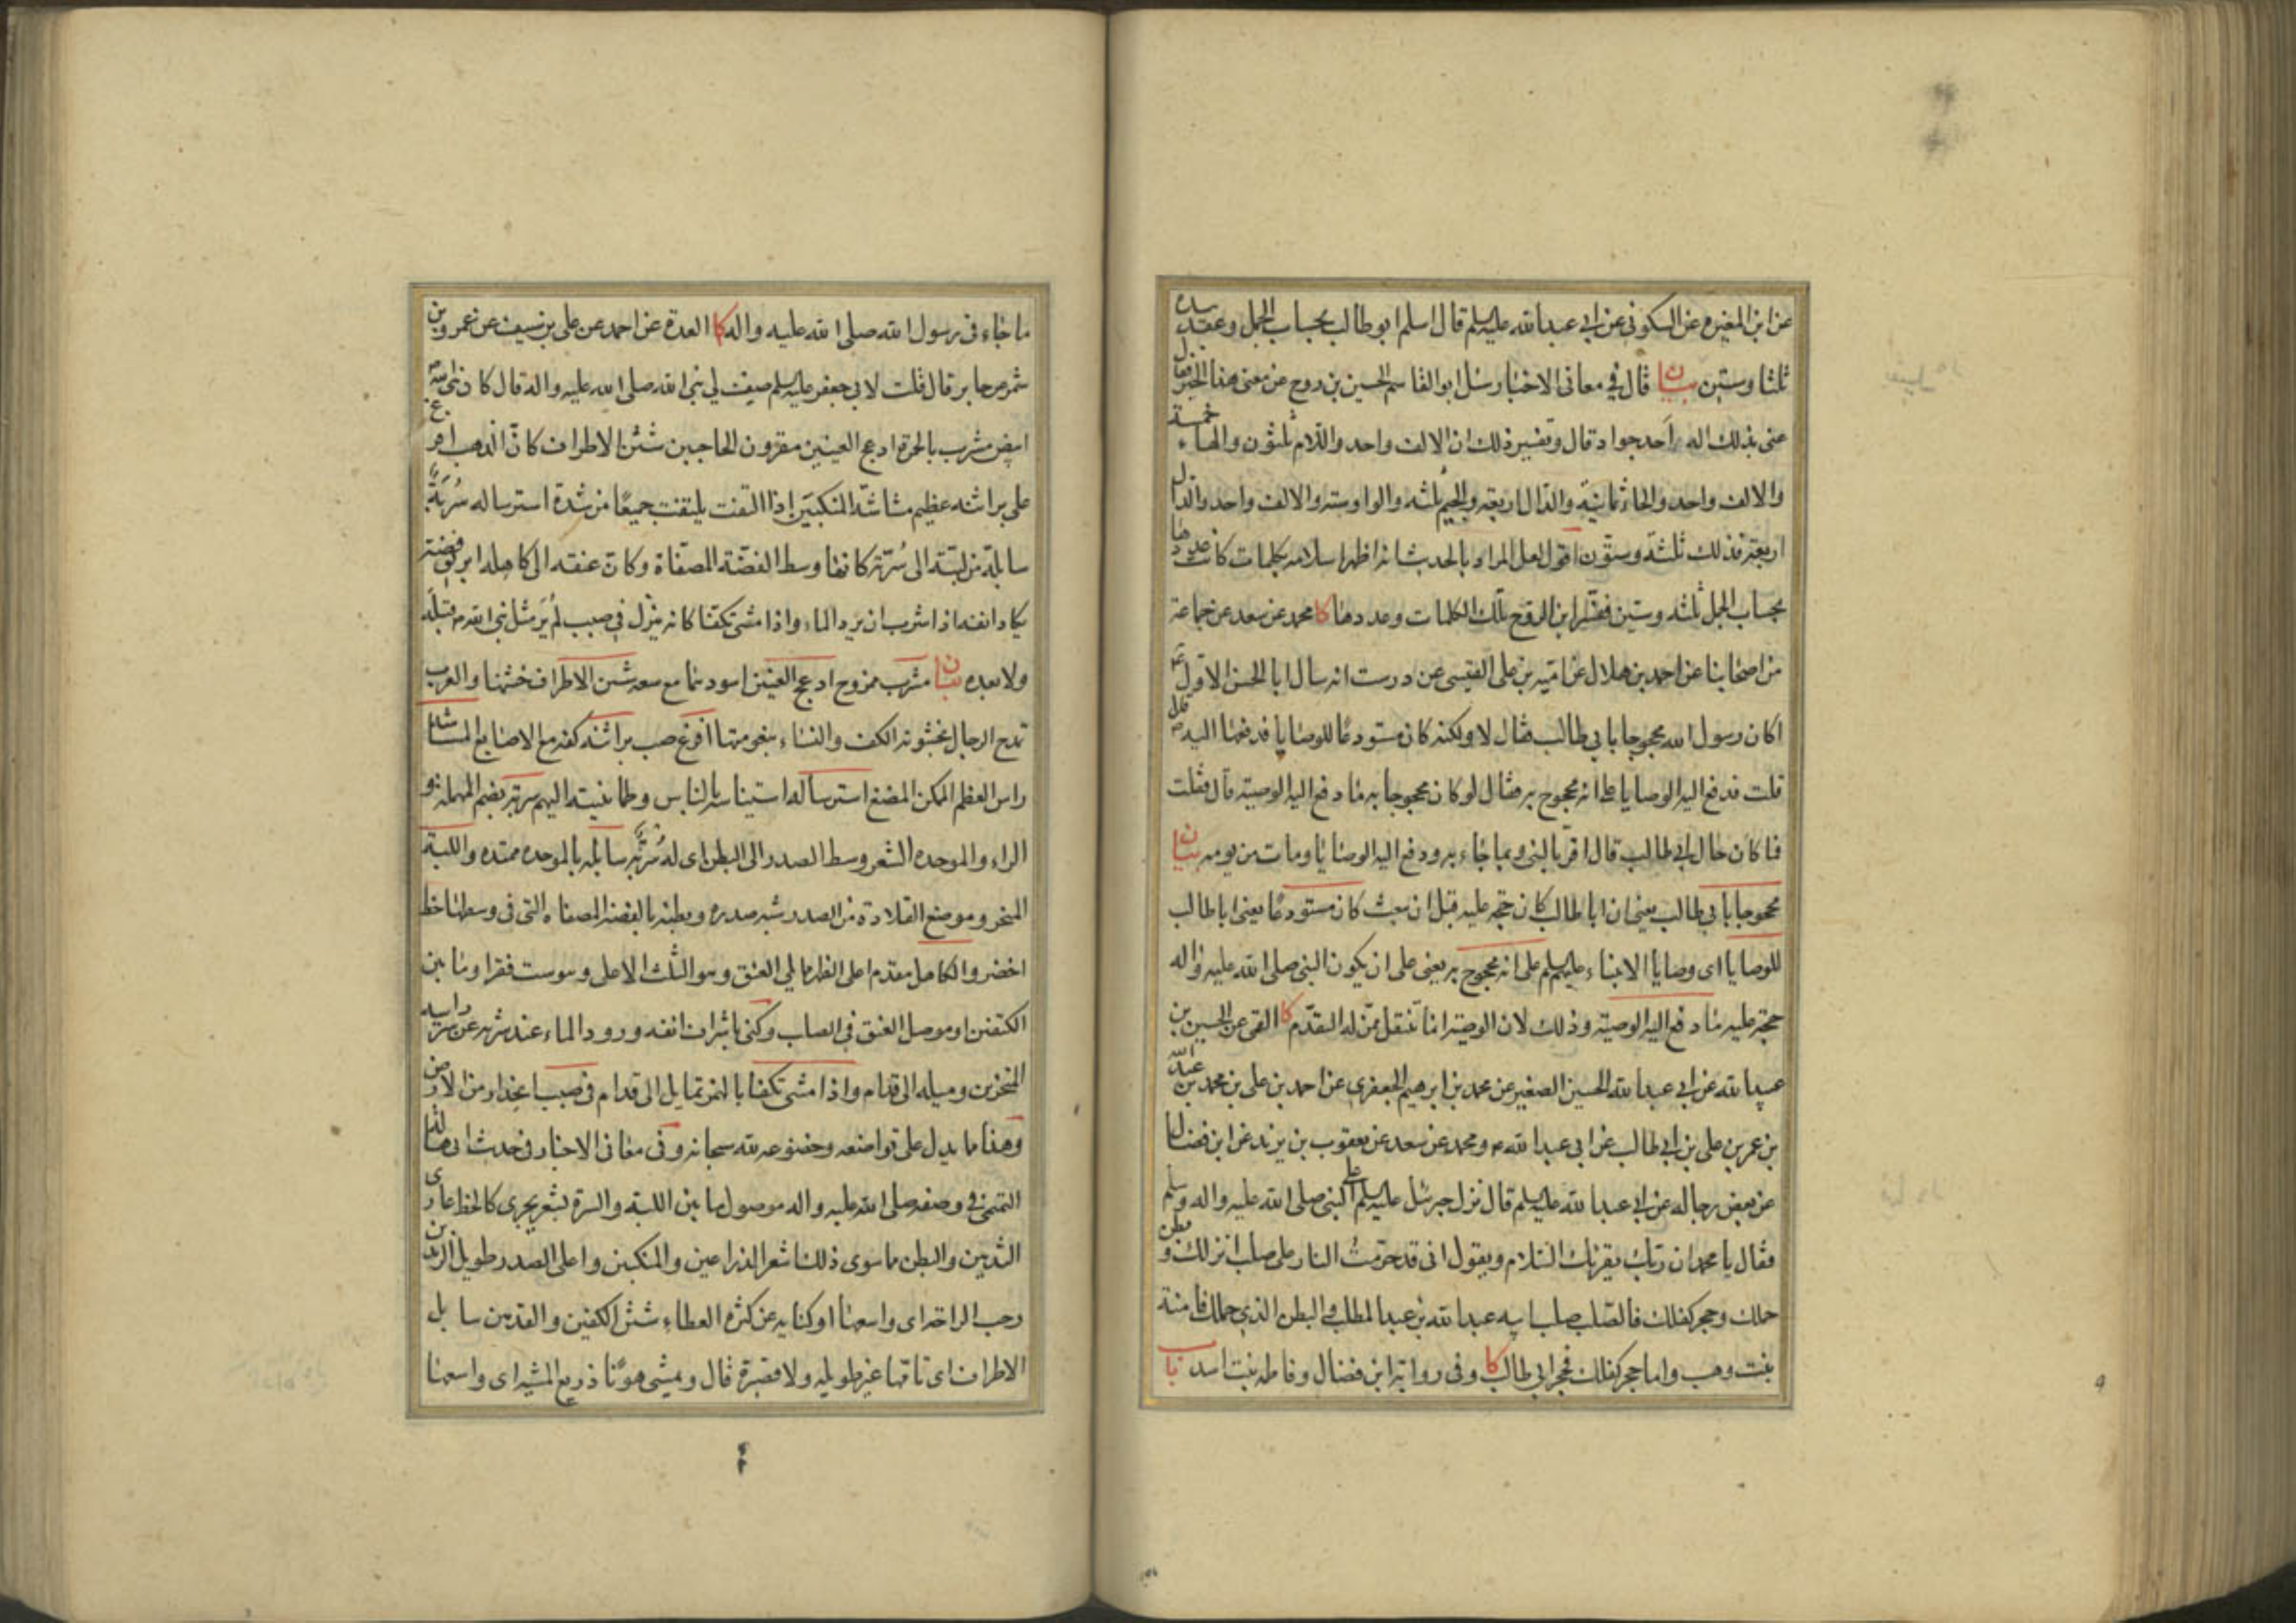 عن ابن المغيره عن السكونى عن ابى عبدالله عليه السلم قال اسلم ابو طالب بحساب الجمل وعقد بيده
ثلثا وستين بيان قال فى معانى الاخبار سئل ابو القاسم الحسين بن روح عن معنى هذا الخبر فقال
عنى بذلك اله احد جواد قال وتفسير ذلك ان الالف واحد واللام ثلثون والهاء خمسة
والالف واحد والحاء ثمانية والدال اربعة والجيم ثلثه والواو سته والالف واحد والدال
اربعة فذلك ثلثة وستون اقول لعل المراد بالحديث انه اظهر اسلامه بكلمات كانت عددها
بحساب الجمل ثلثه وستين ففسر ابن الروح تلك الكلمات وعددها كا محمد عن سعد عن جماعة
من اصحابنا عن احمد بن هلال عن امية بن على القيسى عن درست انه سال ابا الحسن الاول ع
اكان رسول الله محجوجا بابى طالب فقال لا ولكنه كان مستودعا للوصايا فدفعها اليه ص قال
قلت فدفع اليه الوصايا على انه محجوج به فقال لو كان محجوجا به ما دفع اليه الوصية قال فقلت
فما كان حال ابى طالب قال اقر بالنبى وبما جاء به ودفع اليه الوصايا ومات من يومه بيان
محجوجا بابى طالب يعنى ان ابا طالب كان حجة عليه قبل ان يبعث كان مستودعا يعنى ابا طالب
للوصايا اى وصايا الانبياء عليهم السلم على انه محجوج به يعنى على ان يكون النبى صلى الله عليه واله
حجة عليه ما دفع اليه الوصية وذلك لان الوصية انما تنتقل ممن له التقدم كا القمى عن الحسين بن
عبدالله عن ابى عبدالله الحسين الصغير عن محمد بن ابرهيم الجعفرى عن احمد بن على بن محمد بن عبدالله
بن عمر بن على بن ابى طالب عن ابى عبدالله ع ومحمد عن سعد عن يعقوب بن يزيد عن ابن فضال
عن بعض رجاله عن ابى عبدالله عليه السلم قال نزل جبرئيل عليه السلم على النبى صلى الله عليه واله وسلم
فقال يا محمد ان ربك يقرئك السلام ويقول انى قد حرمت النار على صلب انزلك وبطن
حملك وحجر كفلك فالصلب صلب ابيه عبدالله بن عبد المطلب والبطن الذى حملك فامنة
بنت وهب واما حجر كفلك فحجر ابى طالب كا وفى رواية ابن فضال وفاطمه بنت اسد باب
ما جاء فى رسول الله صلى الله عليه واله كا العدة عن احمد عن على بن سيف عن عمرو بن
شمر عن جابر قال قلت لابى جعفر عليه السلم صف لى نبى الله صلى الله عليه واله قال كان نبى الله ع
ابيض مشرب بالحمرة ادعج العينين مقرون الحاجبين شثن الاطراف كان الذهب افرغ
على براثنه عظيم مشاشة المنكبين اذا التفت يلتفت جميعًا من شدة استرساله سربة
سايلة من لبته الى سرته كانها وسط الفضة المصفاة وكان عنقه الى كاهله ابريق فضة
يكاد انفه اذا شرب ان يرد الماء واذا مشى تكفا كانه ينزل فى صبب لم ير مثل نبى الله ص قبله
ولا بعده بيان مشرب ممزوج ادعج العينين اسودهما مع سعة شثن الاطراف خشنها والعرب
تمدح الرجال بخشونة الكف والنساء بنعومتها افرغ صب براثنه كفه مع الاصابع المشاشة
راس العظم الممكن المضغ استرساله استيناسه بالناس وطمانينته اليهم سربة بضم المهملة و
الراء والموحده الشعر وسط الصدر الى البطن اى له سربة سايلة بالموحده ممتده واللبة
المنحر وموضع القلادة من الصدر شبه صدره وبطنه بالفضة المصفاه التى فى وسطها خط
اخضر والكاهل مقدم اعلى الظهر مما يلى العنق وهو الثلث الاعلى وهو ست فقر او ما بين
الكتفين او موصل العنق فى الصلب وكنى باشراف انفه ورود الماء عند شربه عن استرسال
المنخرين وميله الى قدام واذا مشى تكفا بالهمز تمايل الى قدام فى صبب انحدار من الارض
وهذا مما يدل على تواضعه وخضوعه لله سبحانه وفى معانى الاخبار فى حديث ابى هالة
التميمى فى وصفه صلى الله عليه واله موصول ما بين اللبة والسرة بشعر يجرى كالخط عارى
الثديين والبطن ما سوى ذلك اشعر الذراعين والمنكبين واعلى الصدر طويل الزندين
رحب الراحة اى واسعها او كنايه عن كثره العطاء شثن الكفين والقدمين سايل
الاطراف اى تامها غير طويله ولا قصيرة قال ويمشى هونًا ذريع المشيه اى واسعها